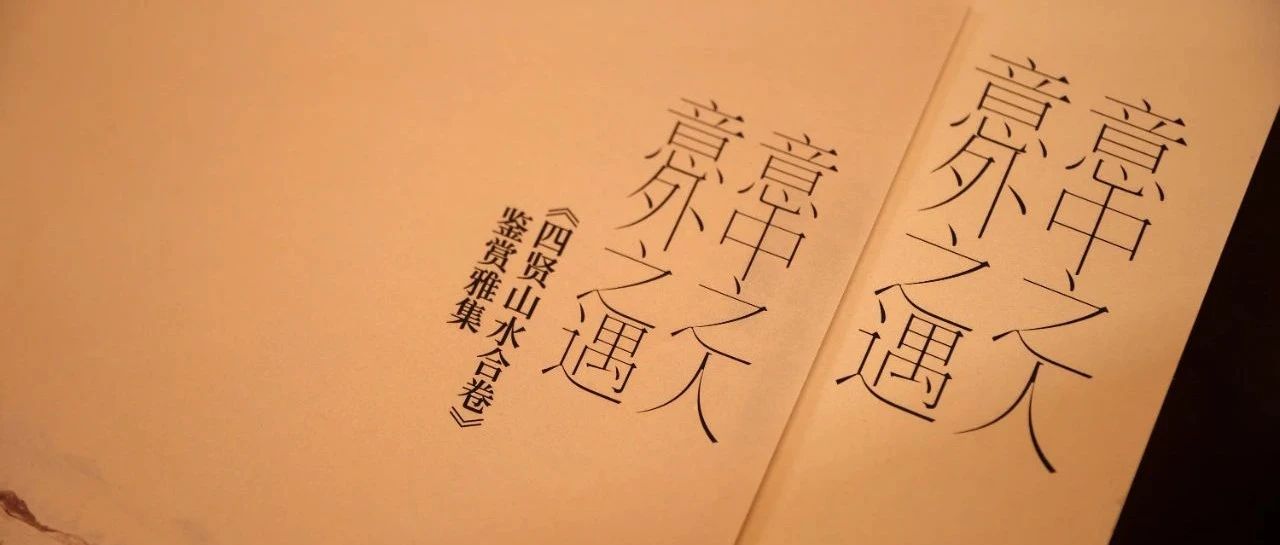 意中之人
意外之遇
意中之人
意外之遇
《四贤山水合卷》
鉴赏雅集